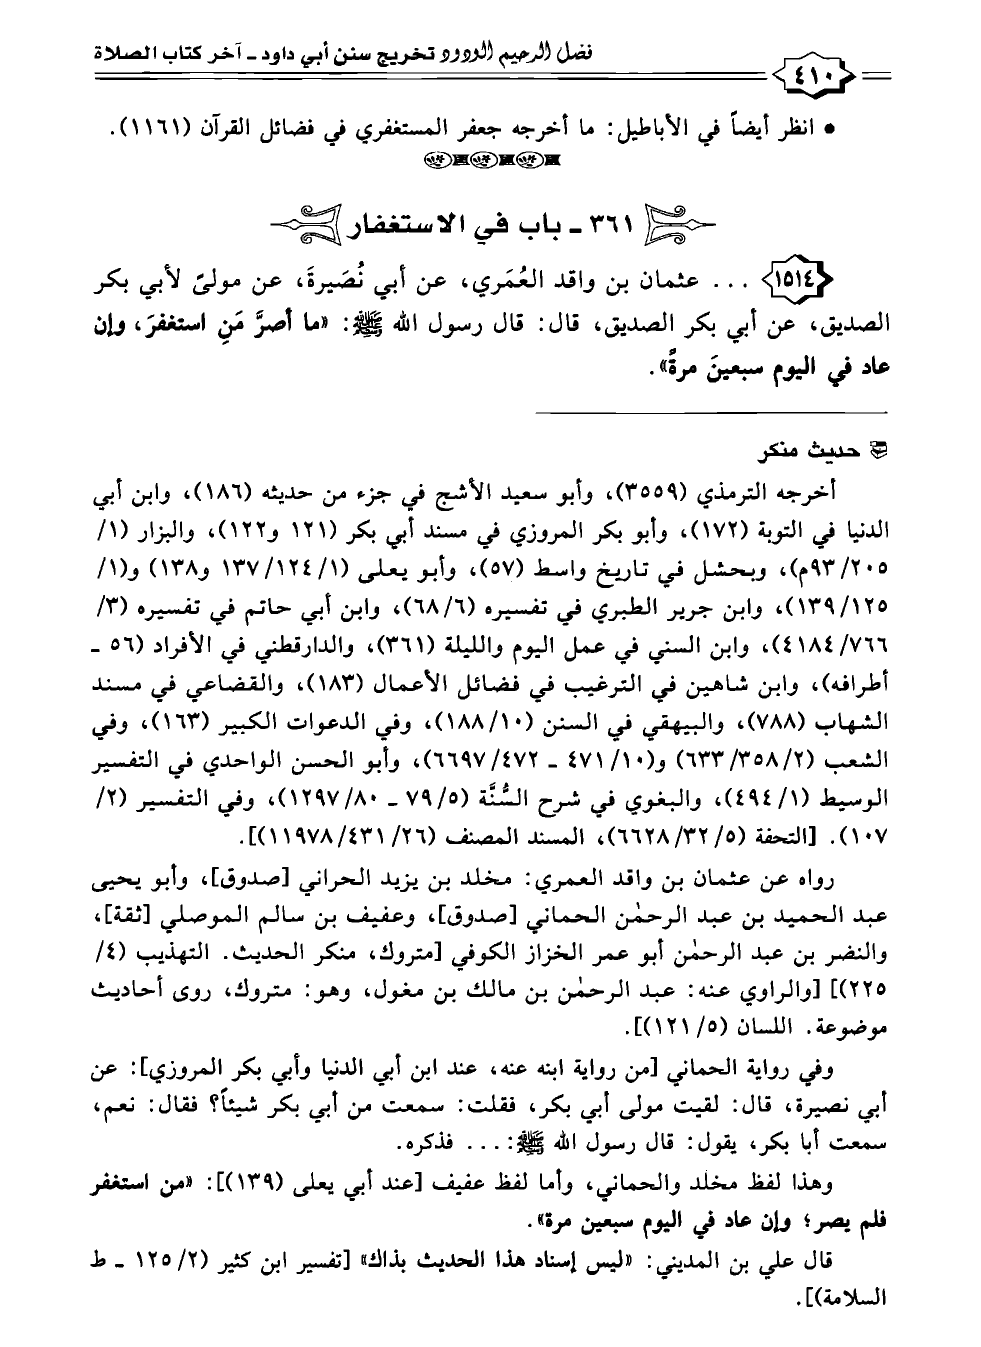 فضل الرحيم الودود تخريج سنن أبي داود ـ آخر كتاب الصلاة
٤١٠
• انظر أيضاً في الأباطيل: ما أخرجه جعفر المستغفري في فضائل القرآن (١١٦١).
٣٦١ ـ باب في الاستغفار
١٥١٤ ... عثمان بن واقد العُمَري، عن أبي نُصَيرةَ، عن مولىً لأبي بكر
الصديق، عن أبي بكر الصديق، قال: قال رسول الله ﷺ: «ما أصرَّ مَنِ استغفرَ، وإن
عاد في اليوم سبعينَ مرةً».
حديث منكر
أخرجه الترمذي (٣٥٥٩)، وأبو سعيد الأشج في جزء من حديثه (١٨٦)، وابن أبي
الدنيا في التوبة (١٧٢)، وأبو بكر المروزي في مسند أبي بكر (١٢١ و١٢٢)، والبزار (١/
٢٠٥/ ٩٣م)، وبحشل في تاريخ واسط (٥٧)، وأبو يعلى (١/ ١٢٤/ ١٣٧ و١٣٨) و(١/
١٢٥/ ١٣٩)، وابن جرير الطبري في تفسيره (٦/ ٦٨)، وابن أبي حاتم في تفسيره (٣/
٧٦٦/ ٤١٨٤)، وابن السني في عمل اليوم والليلة (٣٦١)، والدارقطني في الأفراد (٥٦ ـ
أطرافه)، وابن شاهين في الترغيب في فضائل الأعمال (١٨٣)، والقضاعي في مسند
الشهاب (٧٨٨)، والبيهقي في السنن (١٠/ ١٨٨)، وفي الدعوات الكبير (١٦٣)، وفي
الشعب (٢/ ٣٥٨/ ٦٣٣) و(١٠/ ٤٧١ ـ ٤٧٢/ ٦٦٩٧)، وأبو الحسن الواحدي في التفسير
الوسيط (١/ ٤٩٤)، والبغوي في شرح السُّنَّة (٥/ ٧٩ ـ ٨٠/ ١٢٩٧)، وفي التفسير (٢/
١٠٧). [التحفة (٥/ ٣٢/ ٦٦٢٨)، المسند المصنف (٢٦/ ٤٣١/ ١١٩٧٨)].
رواه عن عثمان بن واقد العمري: مخلد بن يزيد الحراني [صدوق]، وأبو يحيى
عبد الحميد بن عبد الرحمٰن الحماني [صدوق]، وعفيف بن سالم الموصلي [ثقة]،
والنضر بن عبد الرحمٰن أبو عمر الخزاز الكوفي [متروك، منكر الحديث. التهذيب (٤/
٢٢٥)] [والراوي عنه: عبد الرحمٰن بن مالك بن مغول، وهو: متروك، روى أحاديث
موضوعة. اللسان (٥/ ١٢١)].
وفي رواية الحماني [من رواية ابنه عنه، عند ابن أبي الدنيا وأبي بكر المروزي]: عن
أبي نصيرة، قال: لقيت مولى أبي بكر، فقلت: سمعت من أبي بكر شيئاً؟ فقال: نعم،
سمعت أبا بكر، يقول: قال رسول الله ﷺ: ... فذكره.
وهذا لفظ مخلد والحماني، وأما لفظ عفيف [عند أبي يعلى (١٣٩)]: «من استغفر
فلم يصر؛ وإن عاد في اليوم سبعين مرة».
قال علي بن المديني: «ليس إسناد هذا الحديث بذاك» [تفسير ابن كثير (٢/ ١٢٥ ـ ط
السلامة)].